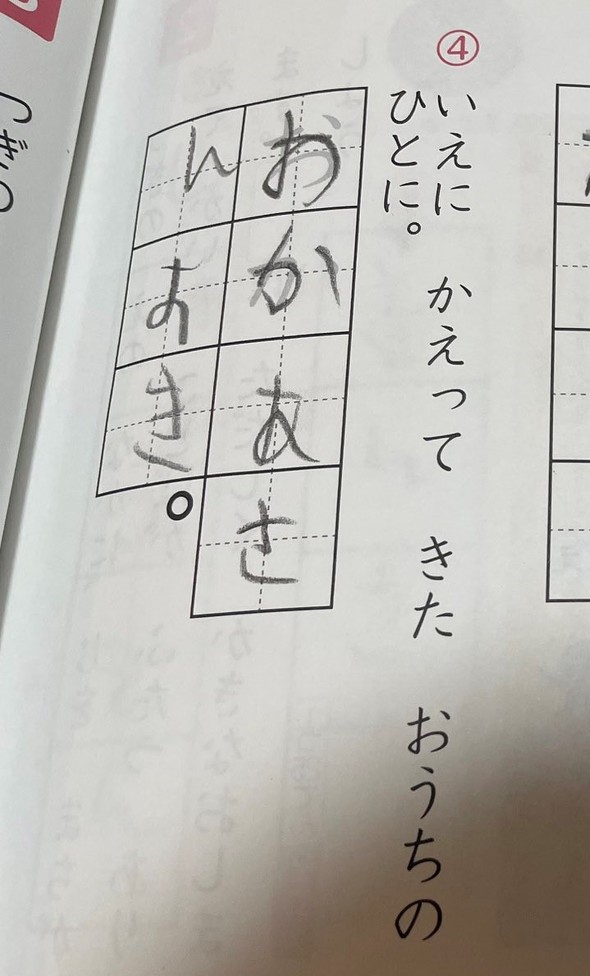 ④
いえに かえって きた おうちの
ひとに。
おかあさ
んすき。
つぎの